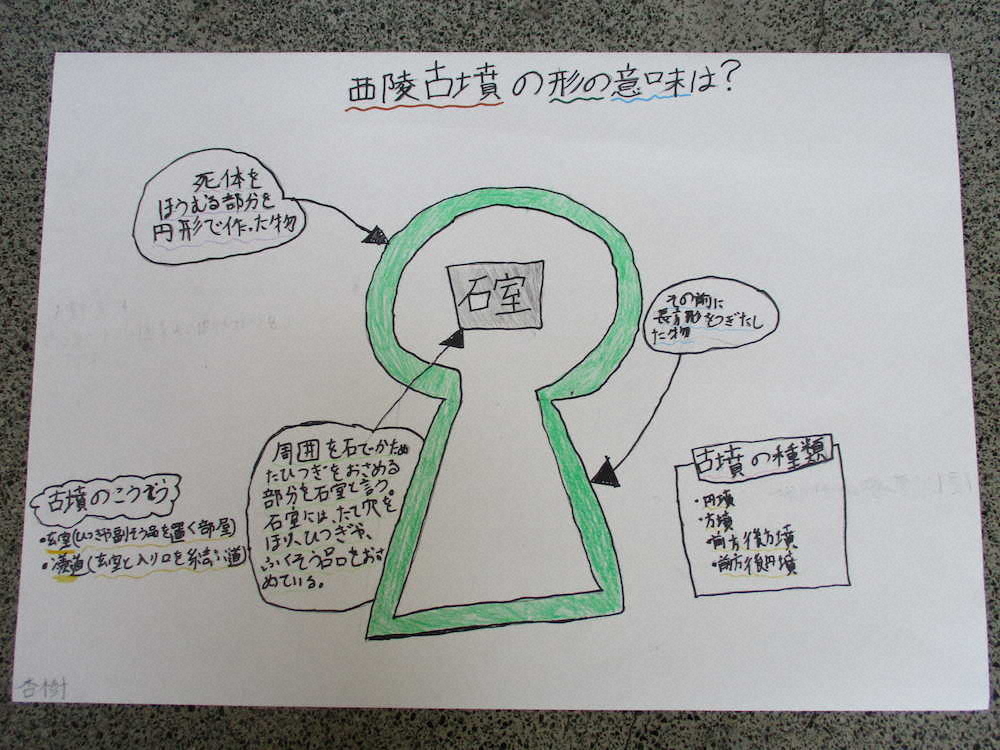 西陵古墳の形の意味は?
死体を
ほうむる部分を
円形で作った物
石室
その前に
長方形をつぎたし
た物
周囲を石でかため
たひつぎをおさめる
部分を石室と言う。
石室には、たて穴を
ほり、ひつぎや、
ふくそう品をおさ
めている。
古墳のこうぞう
・玄室(ひつぎや副そう品を置く部屋)
・羨道(玄室と入り口を結ぶ道)
古墳の種類
・円墳
・方墳
・前方後方墳
・前方後円墳
杏樹